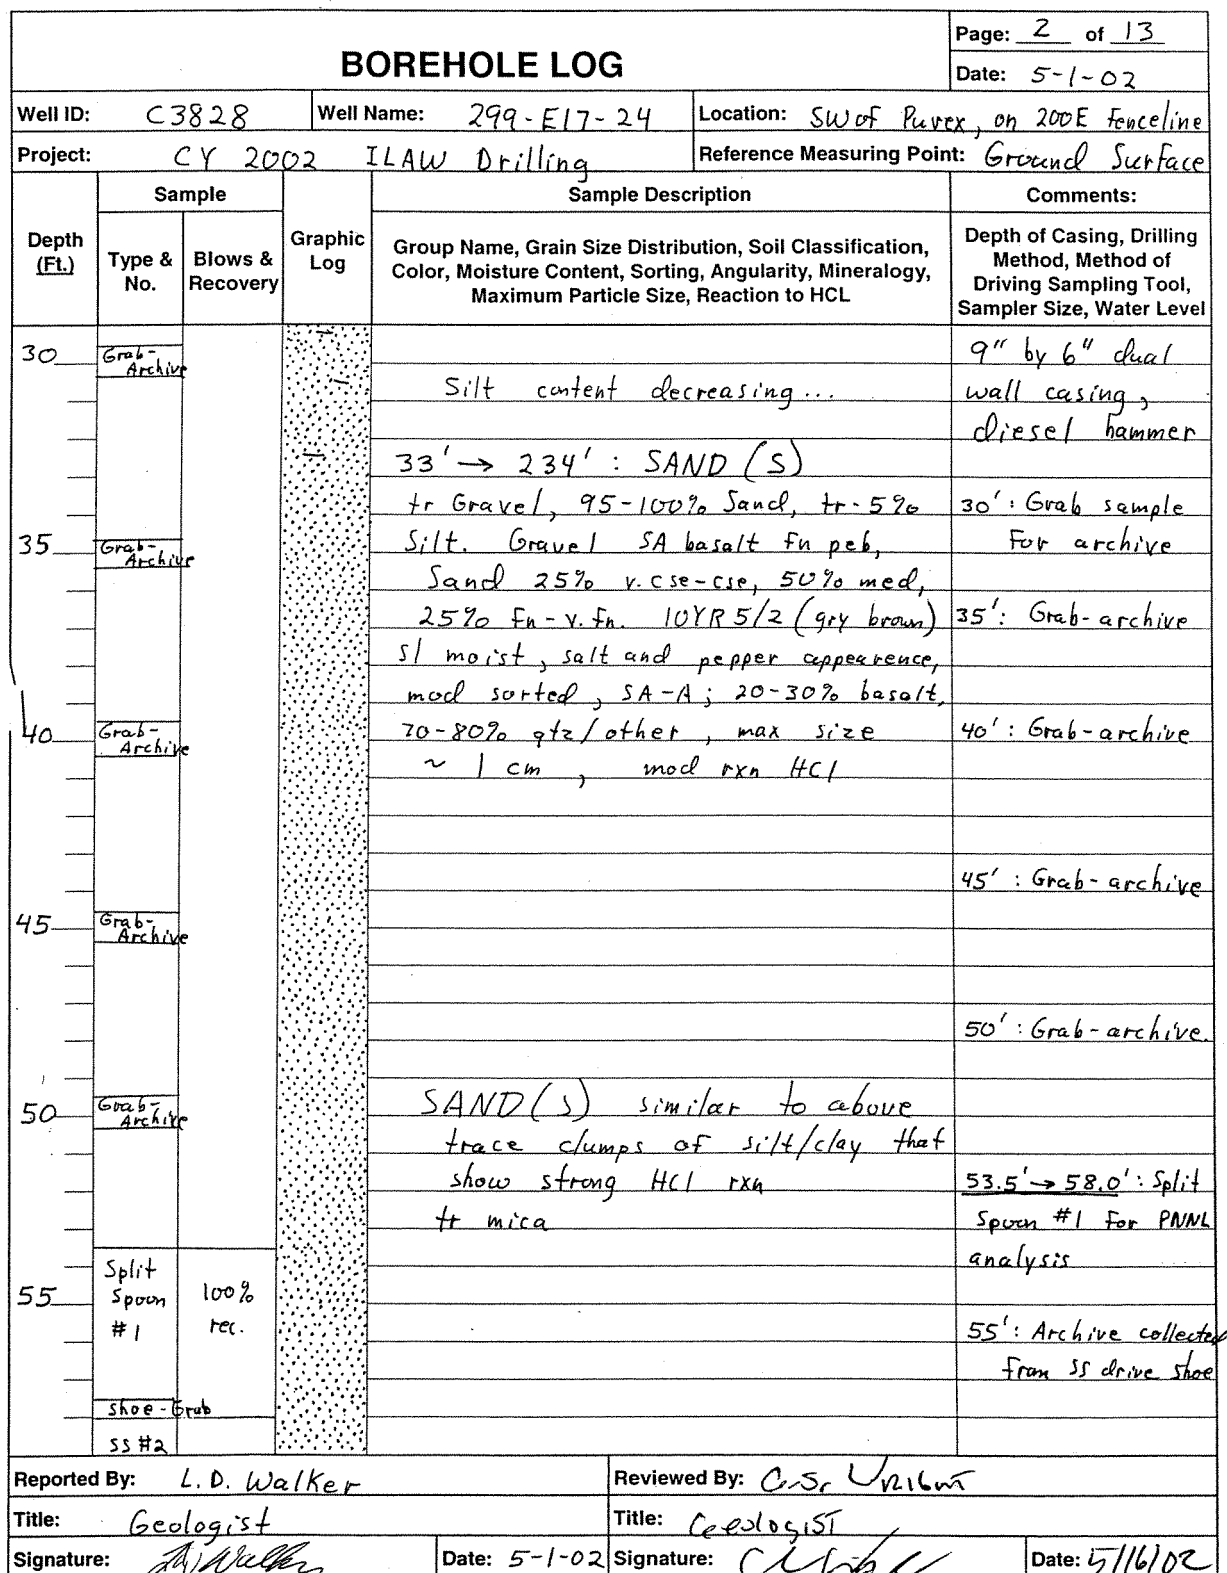 BOREHOLE LOG
Page: 2 of 13
Date: 5-1-02
Well ID: C3828 Well Name: 299-E17-24 Location: SW of Purex, on 200E Fenceline
Project: CY 2002 ILAW Drilling Reference Measuring Point: Ground Surface
Depth (Ft.)
Sample
Type & No.
Blows & Recovery
Graphic Log
Sample Description
Group Name, Grain Size Distribution, Soil Classification,
Color, Moisture Content, Sorting, Angularity, Mineralogy,
Maximum Particle Size, Reaction to HCL
Comments:
Depth of Casing, Drilling
Method, Method of
Driving Sampling Tool,
Sampler Size, Water Level
30
Grab-
Archive
35
Grab-
Archive
40
Grab-
Archive
45
Grab-
Archive
50
Grab-
Archive
55
Split
Spoon
#1
100%
rec.
Shoe-Grab
SS #2
Silt content decreasing...
33' → 234' : SAND (S)
tr Gravel, 95-100% Sand, tr-5%
Silt. Gravel SA basalt fn peb,
Sand 25% v.cse-cse, 50% med,
25% fn-v.fn. 10YR 5/2 (gry brown)
sl moist, salt and pepper appearence,
mod sorted, SA-A; 20-30% basalt,
70-80% qtz/other, max size
~ 1 cm, mod rxn HCl
SAND (S) similar to above
trace clumps of silt/clay that
show strong HCl rxn
tr mica
9" by 6" dual
wall casing,
diesel hammer
30': Grab sample
For archive
35': Grab-archive
40': Grab-archive
45': Grab-archive
50': Grab-archive.
53.5' → 58.0': Split
Spoon #1 for PNNL
analysis
55': Archive collected
from SS drive shoe
Reported By: L.D. Walker
Reviewed By:
Title: Geologist
Title: Geologist
Signature: Walker Date: 5-1-02
Signature: Date: 5/16/02